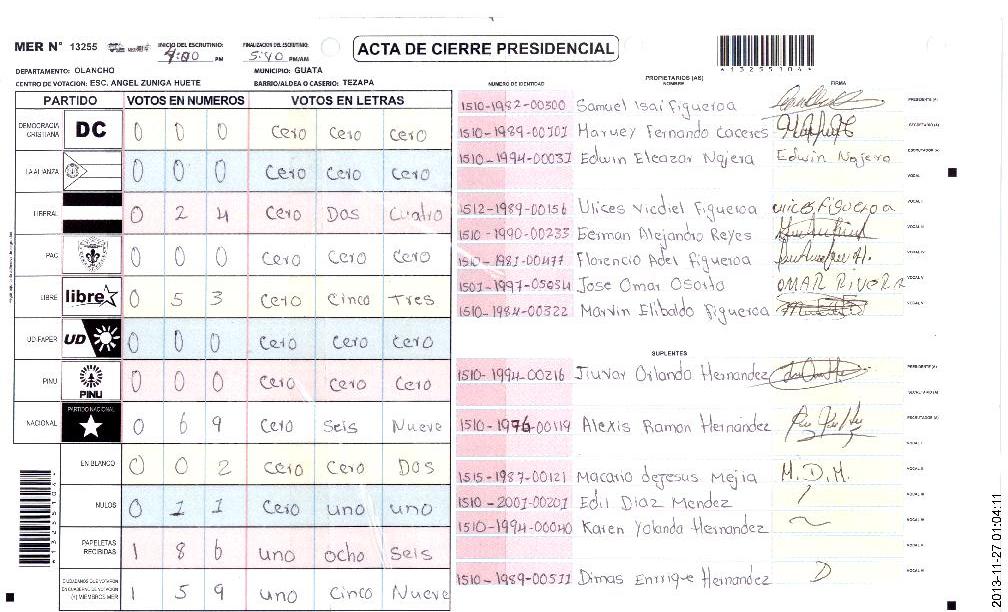 MER N° 13255 INICIO DEL ESCRUTINIO: 4:00 PM FINALIZACION DEL ESCRUTINIO: 5:40 PM/AM
ACTA DE CIERRE PRESIDENCIAL
DEPARTAMENTO: OLANCHO MUNICIPIO: GUATA
CENTRO DE VOTACION: ESC. ANGEL ZUNIGA HUETE BARRIO/ALDEA O CASERIO: TEZAPA
PARTIDO VOTOS EN NUMEROS VOTOS EN LETRAS
DEMOCRACIA CRISTIANA DC 0 0 0 Cero Cero Cero
LA ALIANZA 0 0 0 Cero Cero Cero
LIBERAL 0 2 4 Cero Dos Cuatro
PAC 0 0 0 Cero Cero Cero
LIBRE libre 0 5 3 Cero Cinco Tres
UD-FAPER UD 0 0 0 Cero Cero Cero
PINU PINU 0 0 0 Cero Cero Cero
NACIONAL PARTIDO NACIONAL 0 6 9 Cero Seis Nueve
EN BLANCO 0 0 2 Cero Cero Dos
NULOS 0 1 1 Cero uno uno
PAPELETAS RECIBIDAS 1 8 6 uno ocho Seis
CIUDADANOS QUE VOTARON EN CUADERNO DE VOTACION (+) MIEMBROS MER 1 5 9 uno Cinco Nueve
NUMERO DE IDENTIDAD PROPIETARIOS (AS) NOMBRE FIRMA
1510-1982-00300 Samuel Isai Figueroa PRESIDENTE (A)
1510-1989-00101 Harvey Fernando Caceres SECRETARIO (A)
1510-1994-00031 Edwin Eleazar Najera Edwin Najera ESCRUTADOR (A)
VOCAL
1512-1989-00156 Ulices Vicdiel Figueroa ulices FIGUEROA VOCAL
1510-1990-00233 German Alejandro Reyes VOCAL
1510-1981-00477 Florencio Adel Figueroa VOCAL
1501-1997-05034 Jose Omar Osorto OMAR RIVERA VOCAL V
1510-1984-00322 Marvin Elibaldo Figueroa VOCAL
SUPLENTES
1510-1994-00216 Jiuvar Orlando Hernandez PRESIDENTE (A)
SECRETARIO (A)
1510-1976-00119 Alexis Ramon Hernández ESCRUTADOR (A)
VOCAL
1515-1987-00121 Macario dejesus Mejia M.D.M. VOCAL
1510-2001-00201 Edil Diaz Mendez VOCAL
1510-1994-00040 Karen Yolanda Hernandez VOCAL
VOCAL
1510-1989-00511 Dimas Enrrique Hernandez D VOCAL
2013-11-27 01:04:11